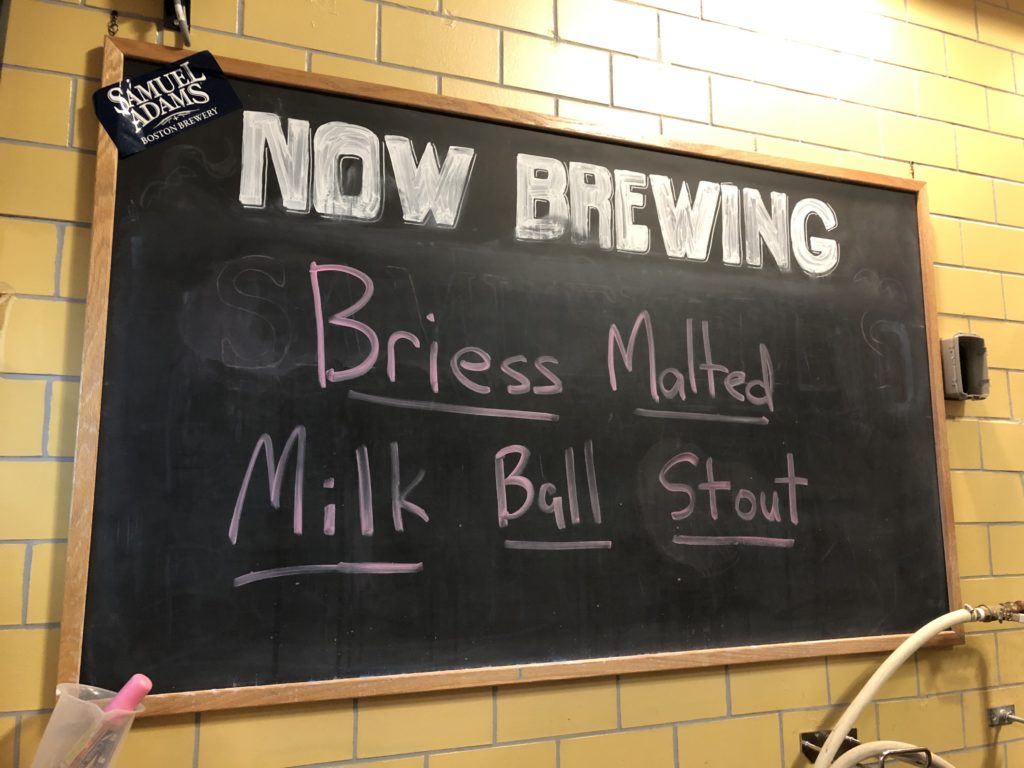 SAMUEL
ADAMS
BOSTON BREWERY
NOW BREWING
Briess Malted
Milk Ball Stout